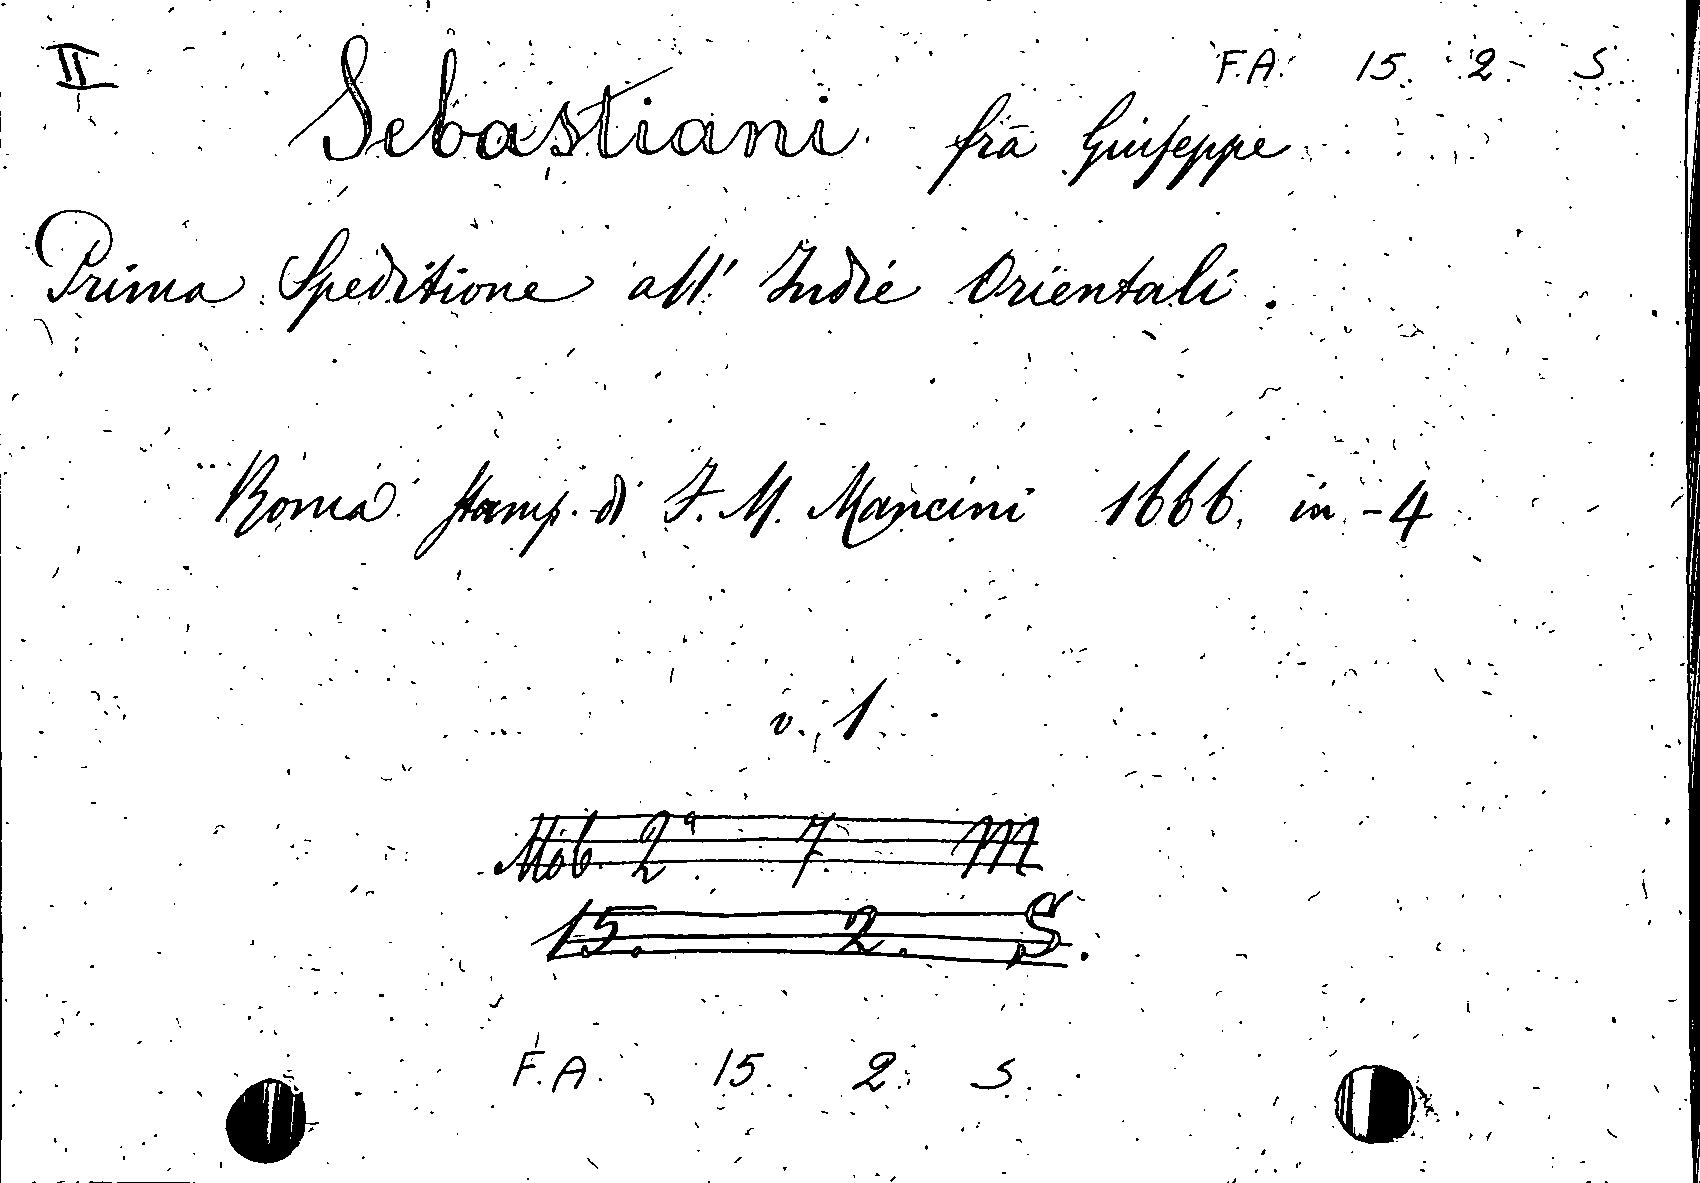 II
F.A. 15. 2. S.
Sebastiani frà Giuseppe
Prima Speditione all' Indie Orientali.
Roma stamp. di F. M. Mancini 1666. in-4
v. 1
Mob. 2ª 7. M
15. 2. S.
F.A. 15. 2. S.